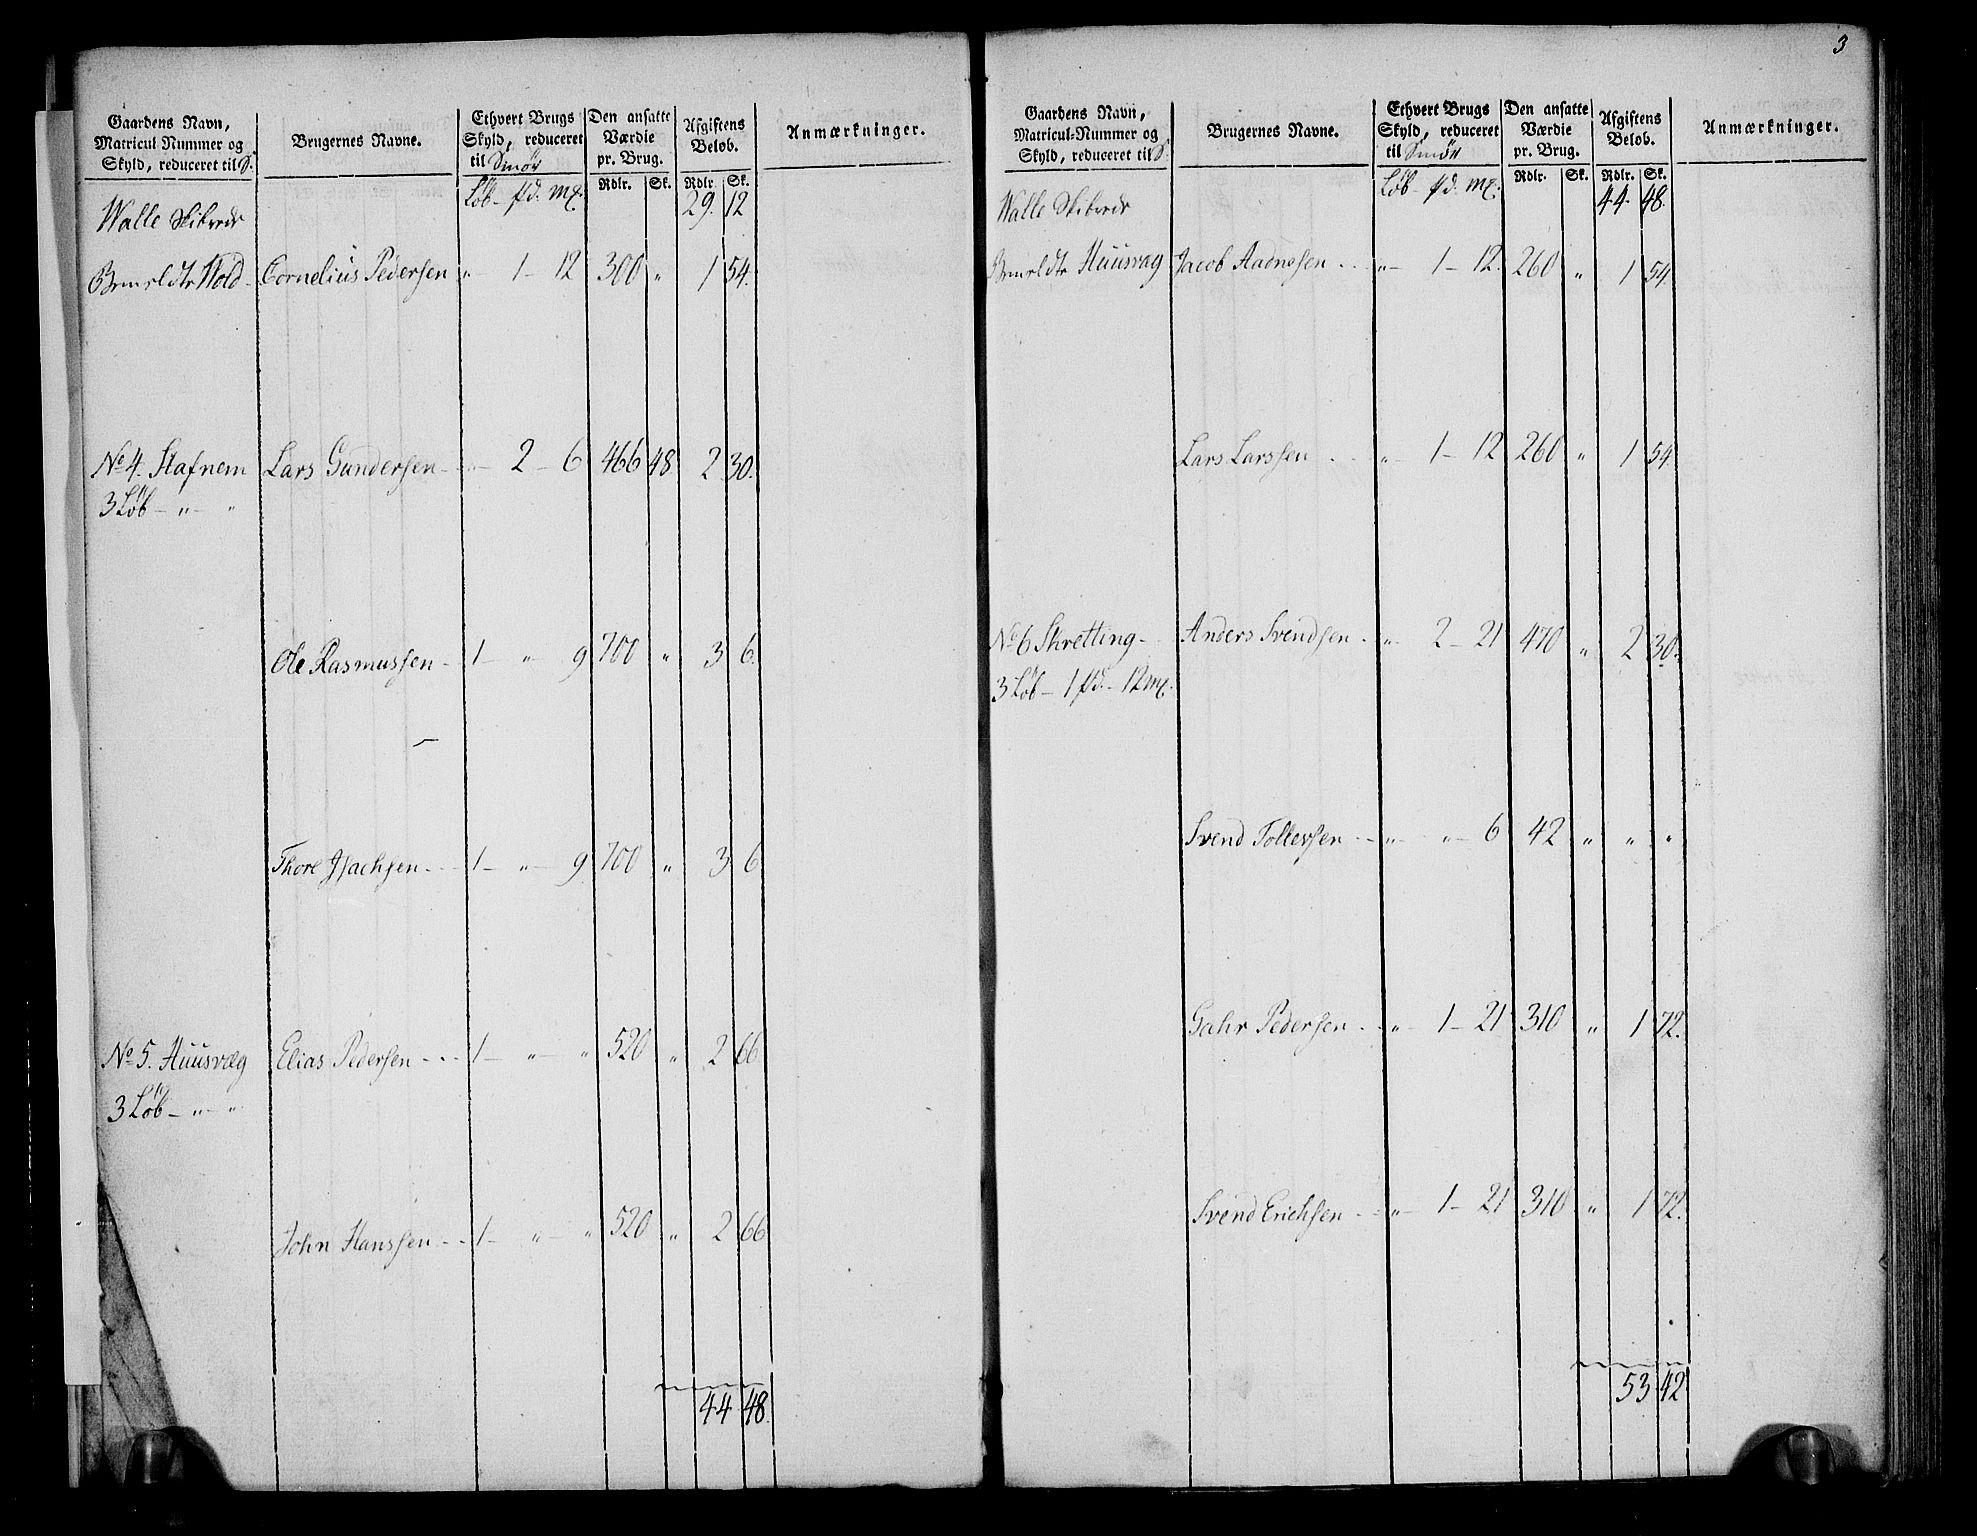 Gaardens Navn,
Matricul Nummer og
Skyld, reduceret til S.
Brugernes Navne.
Ethvert Brugs
Skyld, reduceret
til Smör
Den ansatte
Værdie
pr. Brug.
Afgiftens
Beløb.
Anmærkninger.
Löb - pd. mk. Rdlr. Sk. Rdlr. Sk.
Walle Skibrede 29. 12
Wold - Cornelius Pedersen " 1 - 12 300 " 1 54.
No 4. Stafnem Lars Gundersen - " 2 - 6 466 48 2 30.
3 Löb - " - "
Ole Rasmussen - 1 - " - 9 700 " 3 6.
Thore Isachsen - - 1 - " - 9 700 " 3 6
No 5. Huusvæg Elias Pedersen - - - 1 - " - " 520 " 2 66
3 Löb - " - "
John Hanssen - - 1 - " - " 520 " 2 66
44 48.
3
Gaardens Navn,
Matricul-Nummer og
Skyld, reduceret til S.
Brugernes Navne.
Ethvert Brugs
Skyld, reduceret
til Smör
Den ansatte
Værdie
pr. Brug.
Afgiftens
Beløb.
Anmærkninger.
Löb - pd. mk. Rdlr. Sk. Rdlr. Sk.
Walle Skibrede 44. 48.
Huusvæg Jacob Aadnesen - - " - 1 - 12. 260 " 1 54.
Lars Larssen - " 1 - 12 260 " 1 54.
No 6 Skretting - Anders Svendsen - " - 2 - 21 470 " 2 30.
3 Löb - 1 pd. - 12 mk.
Svend Tollevsen - - " - " - 6 42 " " "
Gahr Pedersen - - " - 1 - 21 310 " 1 72.
Svend Erichsen - - " - 1 - 21 310 " 1 72.
53 42